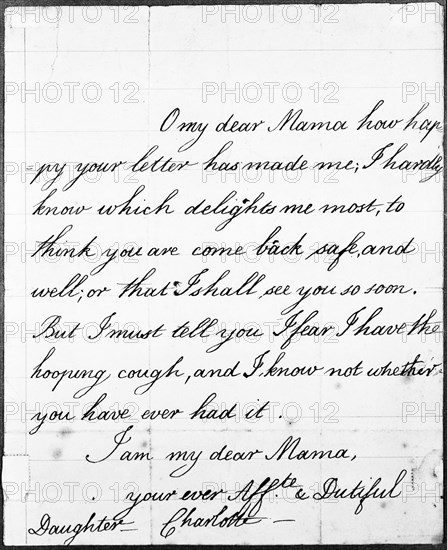 O my dear Mama how hap
=py your letter has made me; I hardly
know which delights me most, to
think you are come back safe, and
well; or that I shall see you so soon.
But I must tell you I fear I have the
hooping cough, and I know not whether
you have ever had it.
I am my dear Mama,
your ever Aff.te & Dutiful
Daughter Charlotte
PHOTO 12